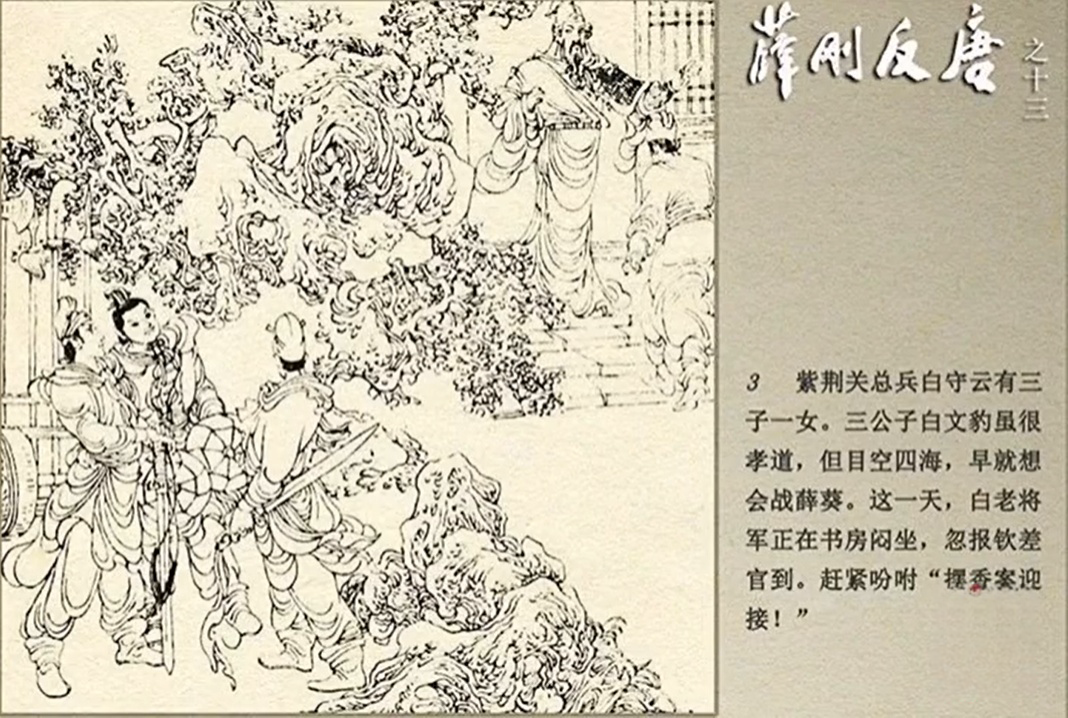 薛刚反唐
之十三
3 紫荆关总兵白守云有三
子一女。三公子白文豹虽很
孝道，但目空四海，早就想
会战薛葵。这一天，白老将
军正在书房闷坐，忽报钦差
官到。赶紧吩咐“摆香案迎
接！”